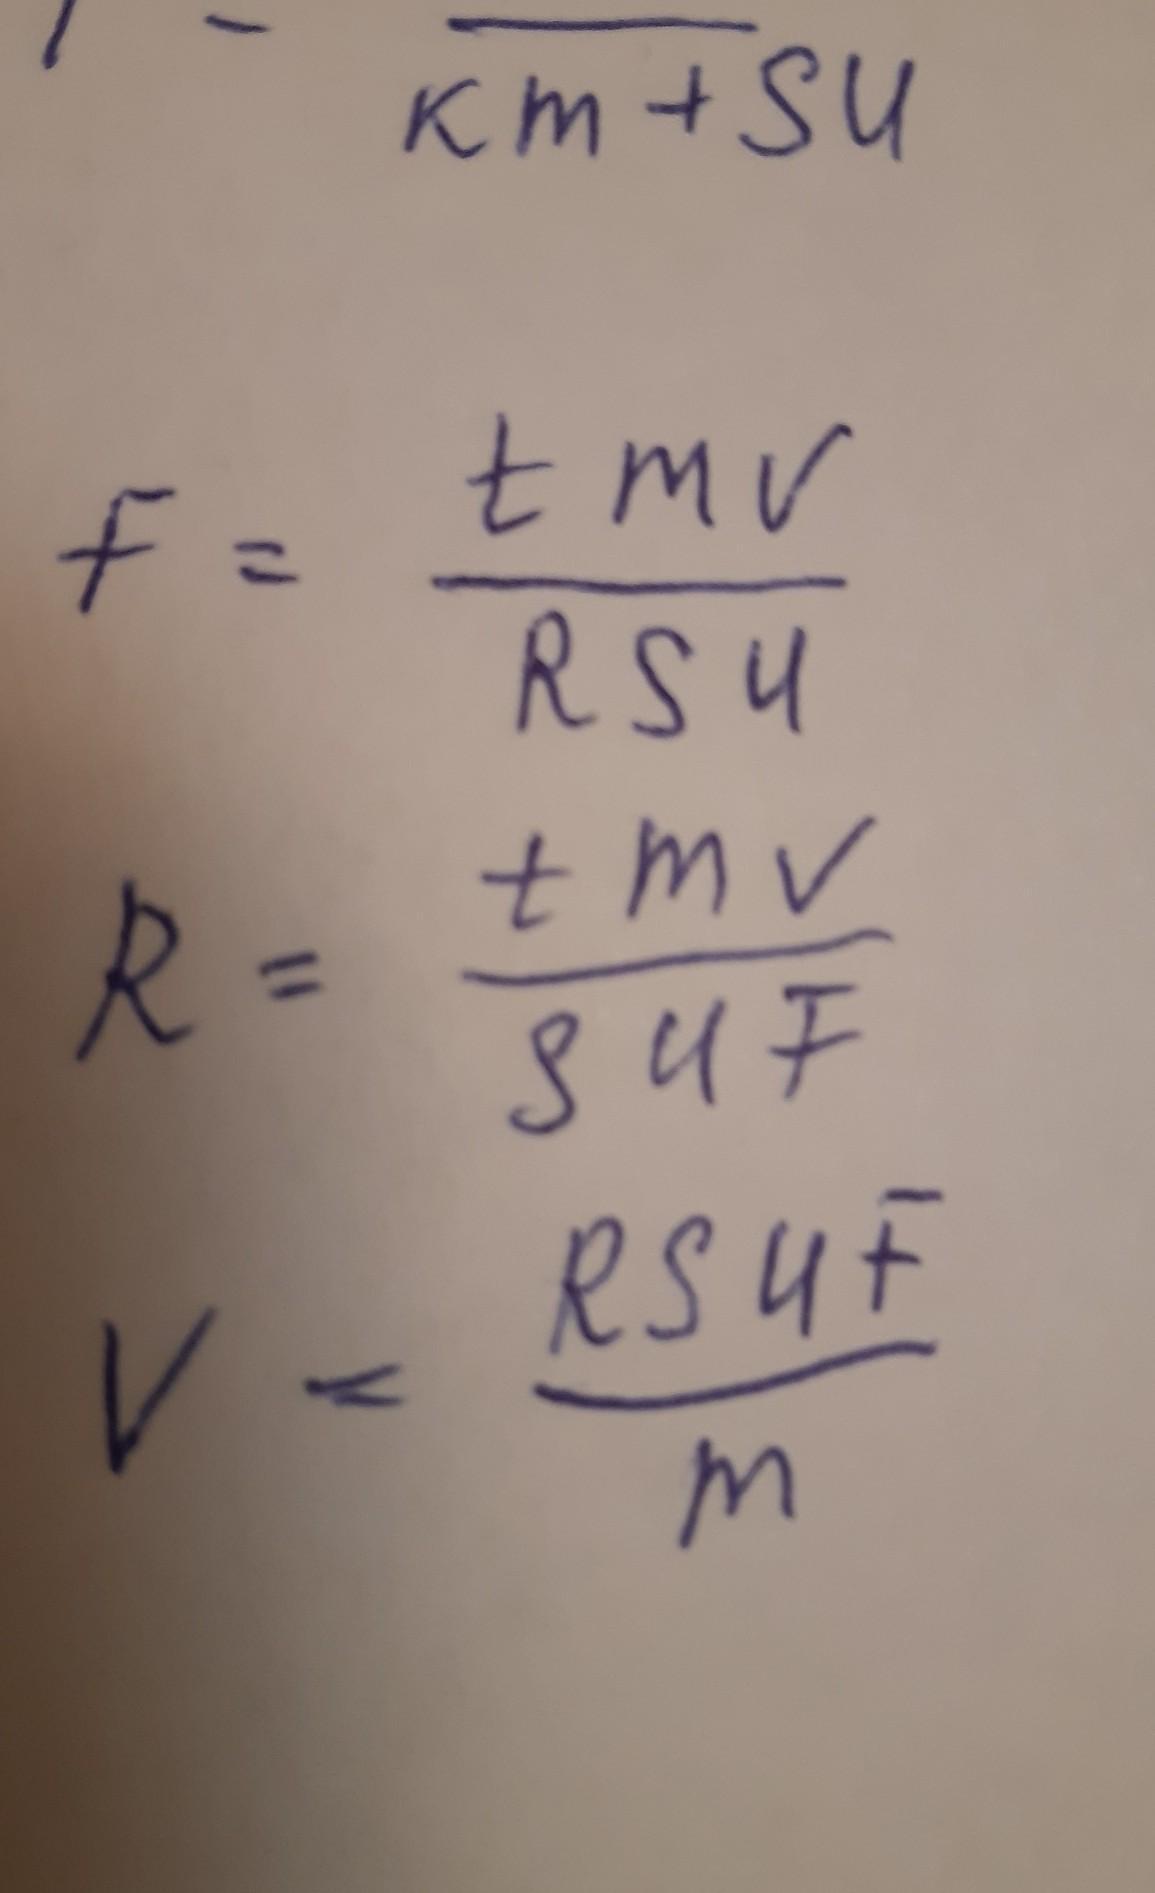 km + SU
F = t m V / R S U
R = t m V / S U F
V = R S U F / m